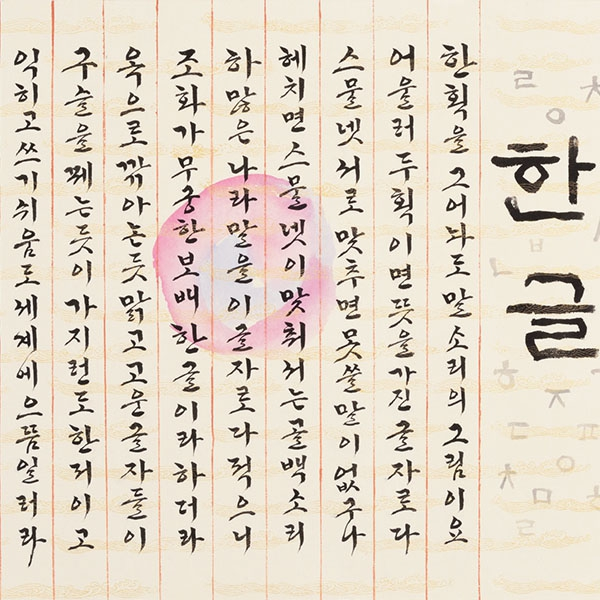 한글
한획을 그어놔도 말소리의 그림이요
어울러 두획이면 뜻을 가진 글자로다
스물넷 서로 맞추면 못쓸말이 없구나
헤치면 스물넷이 맞취서는 골백소리
하많은 나라말을 이글자로 다적으니
조화가 무궁한 보배 한글이라 하더라
옥으로 깎아논듯 맑고고운 글자들이
구슬을 꿰는듯이 가지런도 한저이고
익히고 쓰기쉬움도 세계에 으뜸일러라